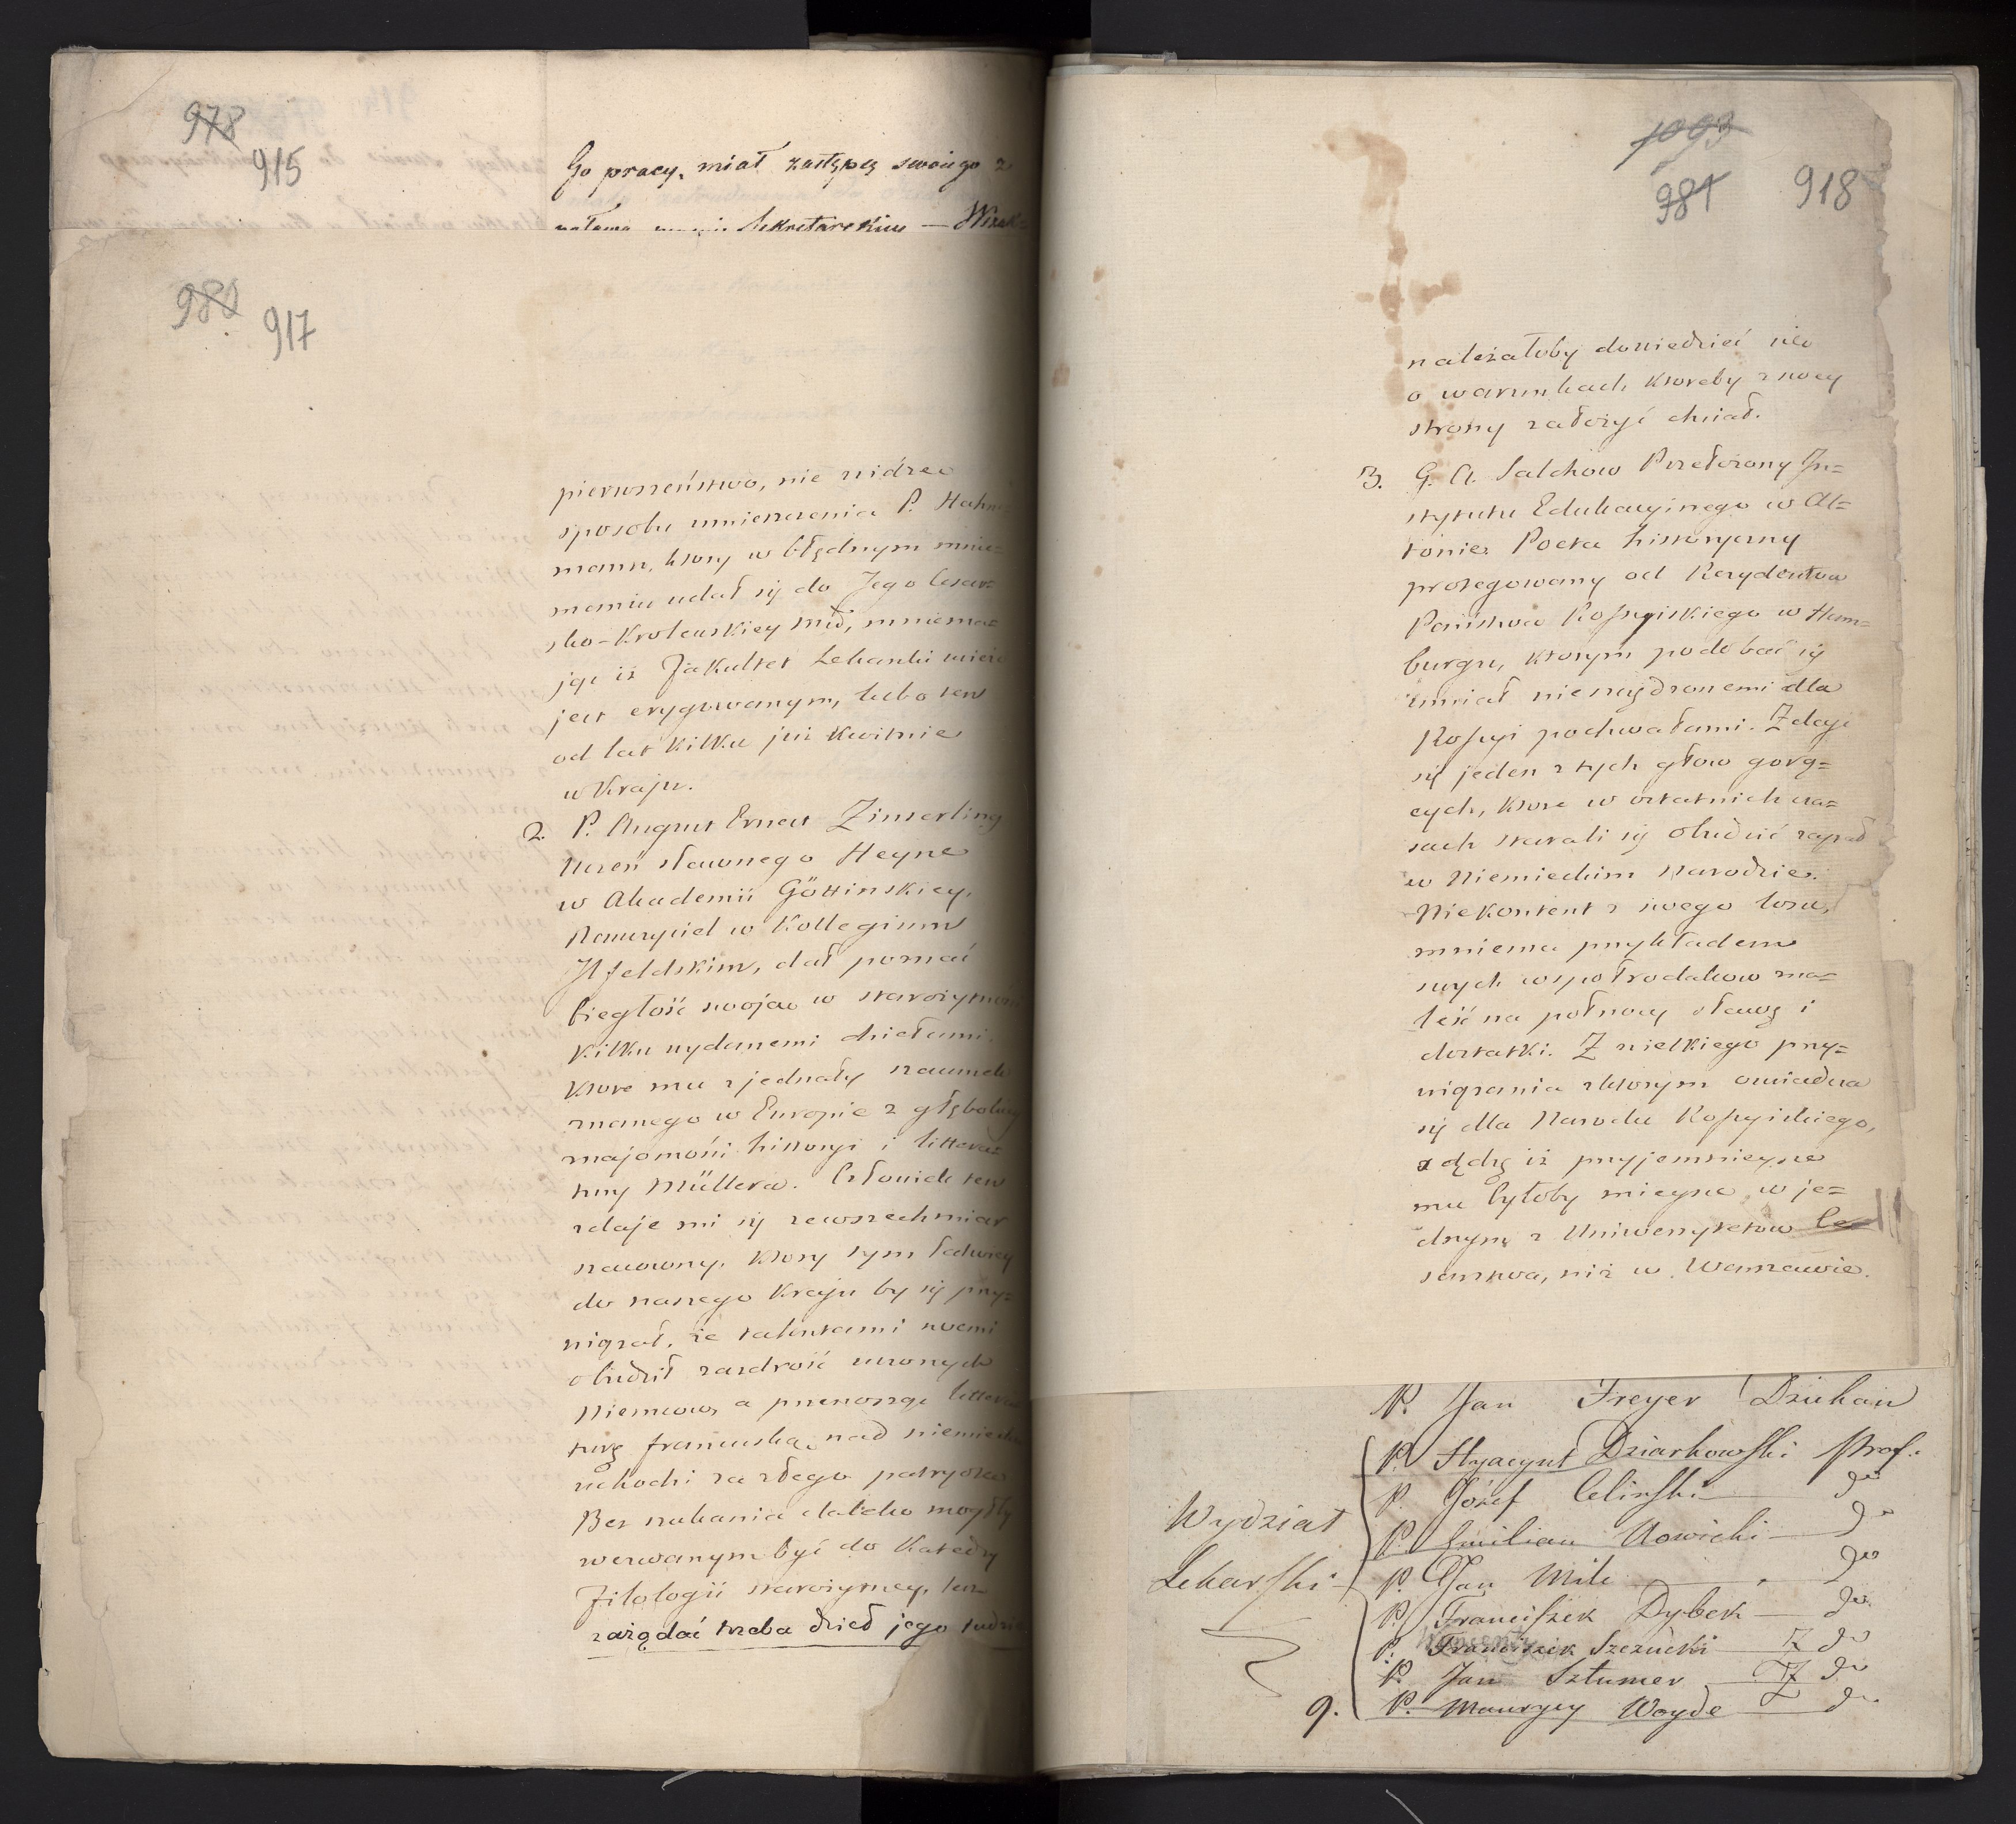 978
915
Go pracy, miał zastępcę swoiego z
Sekretarskim — 
980
917
pierwszeństwo, nie widzę
sposobu umieszczenia P. Hahne=
mann, ktory w błędnym mnie=
maniu udał się do Jego Cesar=
sko-Krolewskiey Mći, mniema=
jąc iż Fakultet Lekarski
jest erygowanym, lubo ten
od lat kilku już kwitnie
w Kraju.
2. P. August Ernest Zinserling
Uczeń sławnego Heyne
w Akademii Göttinskiey,
Nauczyciel w Kollegium
Ilfeldskim, dał poznać
biegłość swoją w starożytnoś
kilku wydanemi dziełami,
ktore mu zjednały szacunek
znanego w Europie z głębokiey
znajomości historyi i littera=
tury Müllera. Człowiek ten
zdaje mi się ze wszech miar
szacowny, ktory tym łatwiey
do naszego Kraju by się przy=
wiązał, że talentami swemi
obudził zazdrość uczonych
Niemcow, a przenosząc littera
turę francuską nad niemiecką
uchodzi za złego patryotę
Bez szukania daleko mogłby
wezwanym być do Katedry
Filologii starożytney, lecz
zażądać trzeba dzieł jego tudzie
1093
981
918
należałoby dowiedzieć się
o warunkach ktoreby z swey
strony założyć chciał.
3. G. A. Salchow Przełożony In=
stytutu Edukacyinego w Al=
tonie, Poeta historyczny
protegowany od Rezydenta
Państwa Rossyiskiego w Ham=
burgu, ktorym podobać się
umiał
Rossyi pochwałami. Zdaje
się jeden z tych głow gorą=
cych, ktore w ostatnich cza=
sach starali się obudzić zapał
w Niemieckim Narodzie.
Niekontent z swego losu,
mniema przykładem
swych wspołrodakow zna=
leść na połnocy sławę i
dostatki. Z wielkiego przy=
wiązania z ktorym oświadcza
się dla Narodu Rossyiskiego,
sądzę iż przyjemnieysze
mu byłoby mieysce w je=
dnym z Uniwersytetow Ce=
sarstwa, niż w Warszawie.
P. Jan Freyer Dziekan
P. Hyacynt Dziarkowski Prof.
P. Józef Celiński — do
P. Emilian Nowicki — do
P. Jan Mile — do
P. Franciszek Dybek — do
P. Franciszek Szczucki — Z do
P. Jan Sztumer — Z do
9. P. Maurycy Woyde — Z do
Wydział
Lekarski